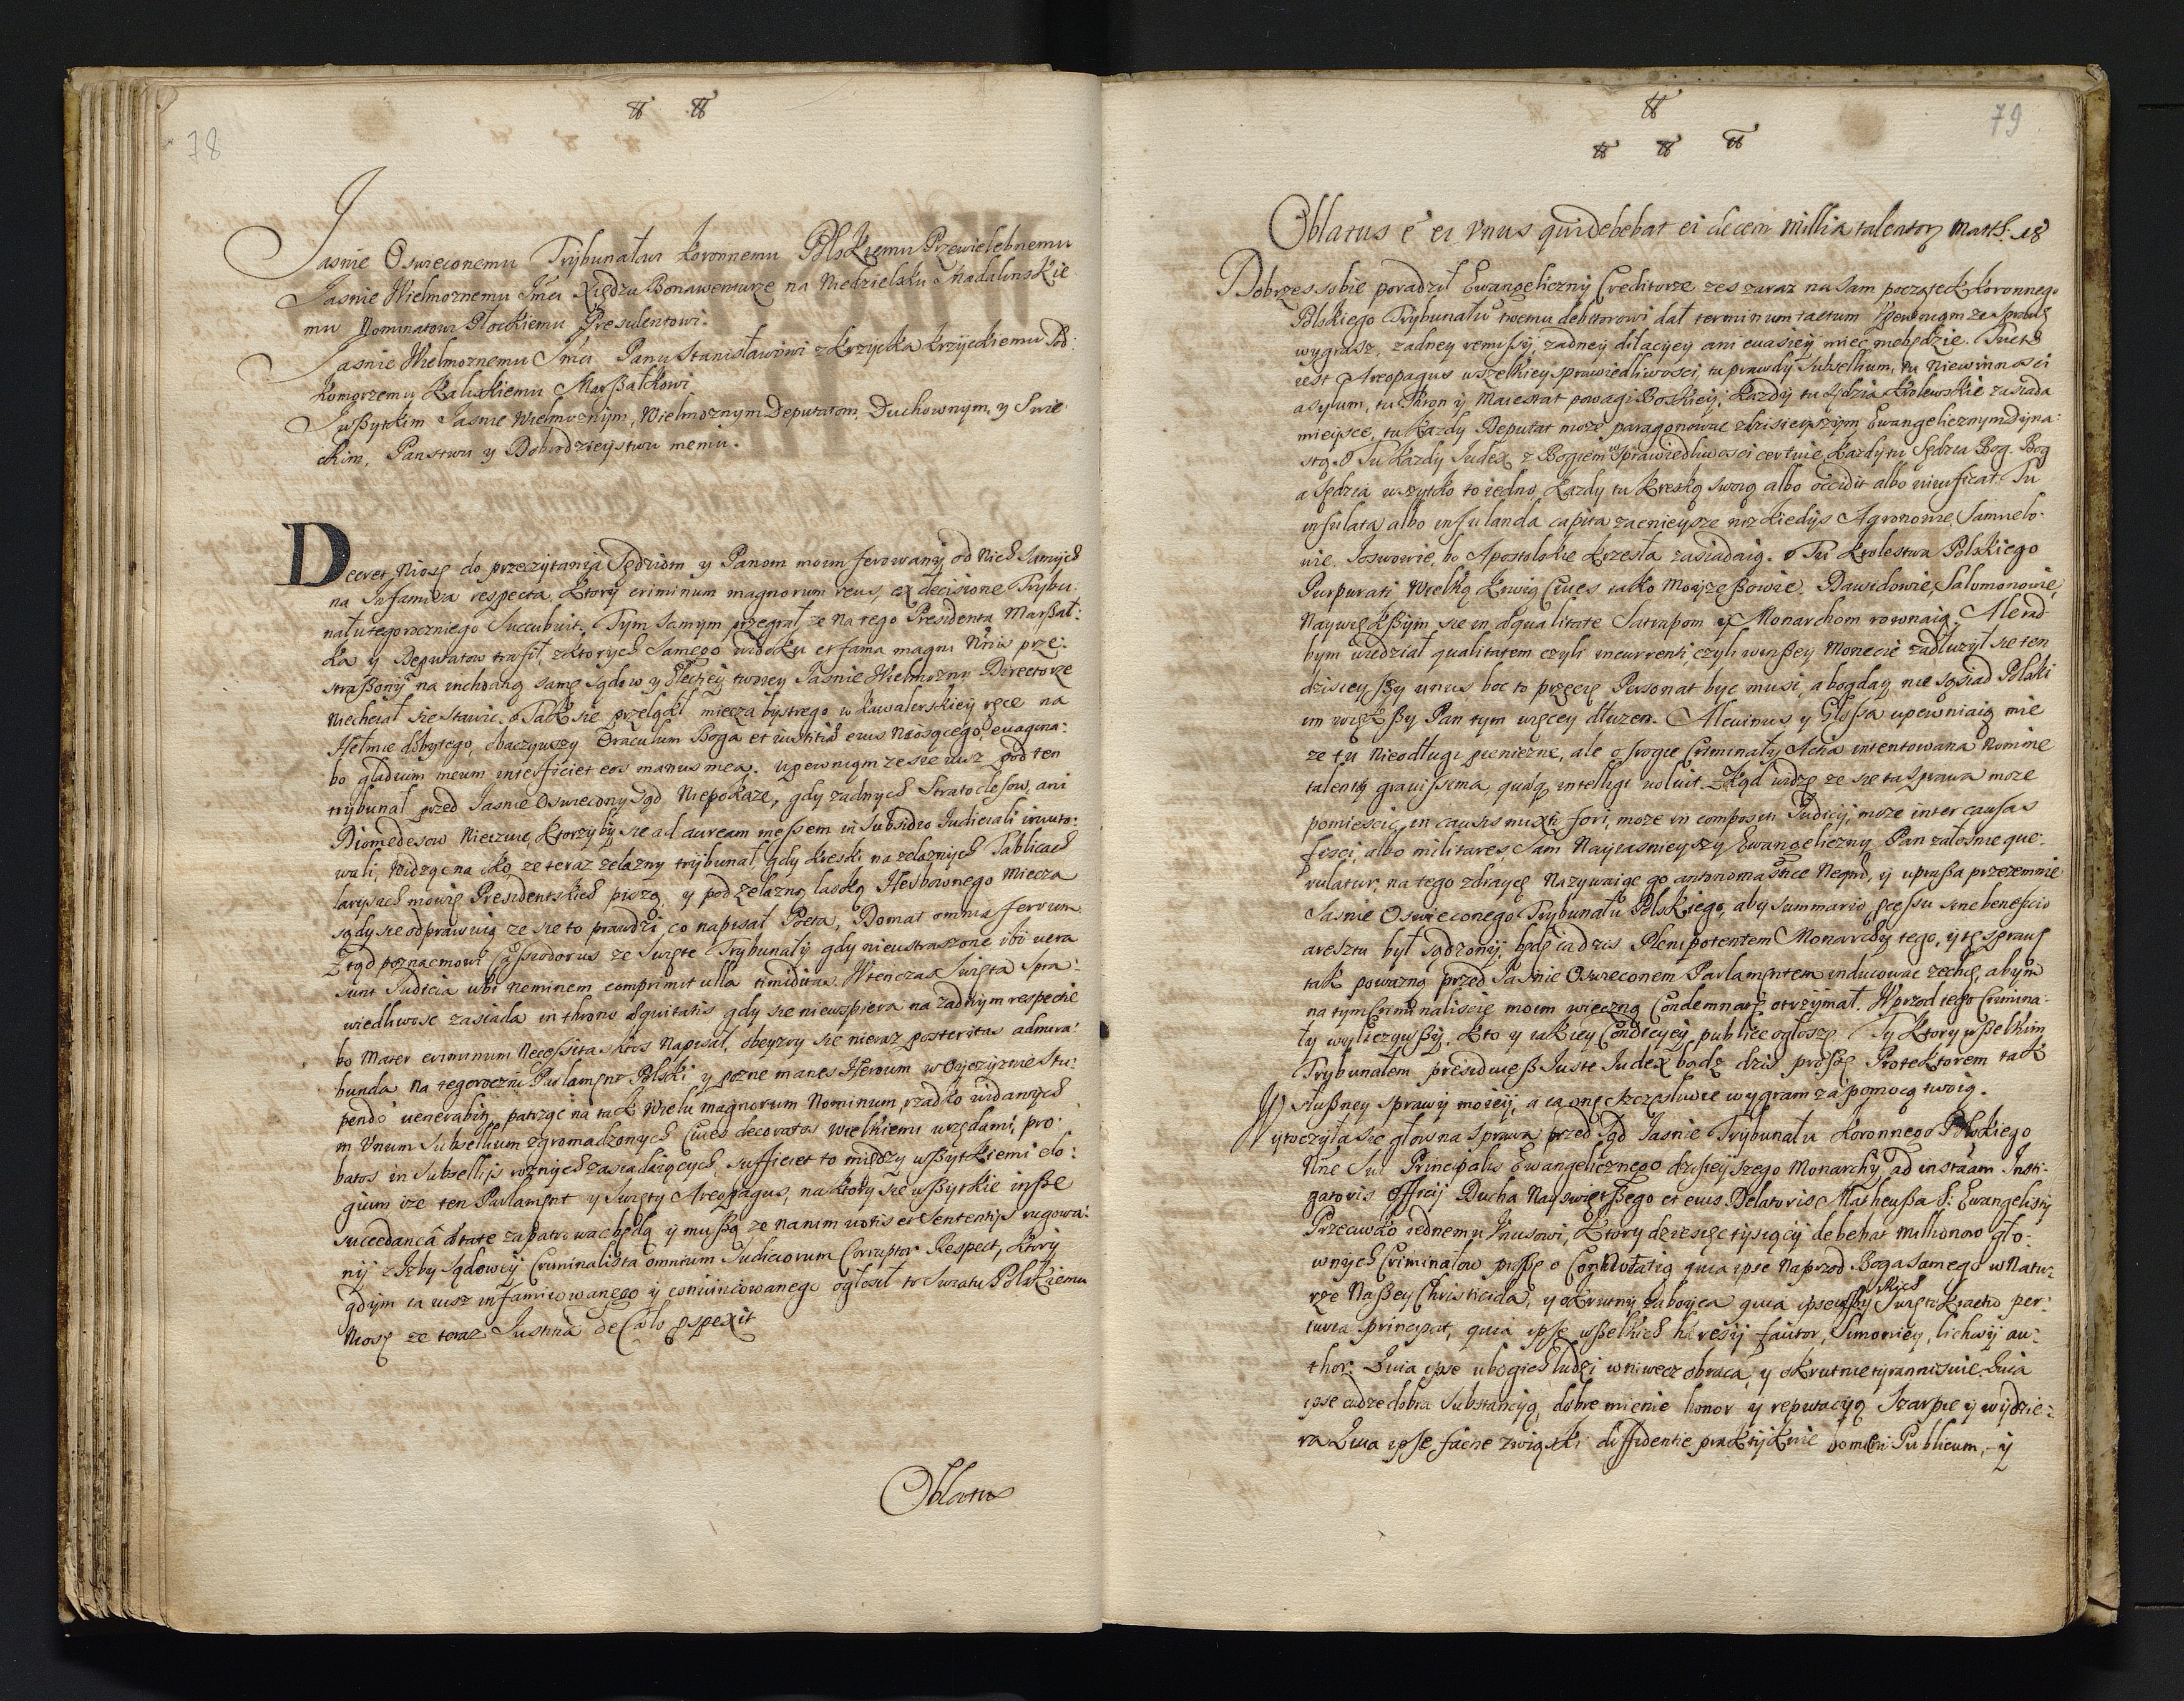 78
Jasnie Oswieconemu Trybunałowi Koronnemu Polskiemu Przewielebnemu
Jasnie Wielmoznemu Jmci Xiędzu Bonawenturze na Niedzielsku Madalinskie
mu Nominatowi Płockiemu Presidentowi.
Jasnie Wielmoznemu Jmci Panu Stanisławowi z Krzycka Krzyckiemu Pod
komorzemu Kaliskiemu Marszałkowi
Wszytkim Jasnie Wielmoznym, Wielmoznym Deputatom, Duchownym, y Swie
ckim, Panstwu y Dobrodzieystwu memu.
Decret Niosę do przeczytania Sędziom y Panom moim ferowany od Nich Samych
na Infamisa respecta, ktory criminum magnorum reus, ex decisione Trybu
nału tegorocznego Succubuit. Tym samym przegrał ze na tego Presidenta Marszał:
ka y Deputatow trafił, z ktorych Samego widoku et fama magni Nnis prze:
straszony na inchoang samę sądow y Elechiey twoiey Jasnie Wielmozny Directorze
Niechciał się stawic. Tak się przeląkł miecza bystrego w kawalerskiey ręce na
Hełmie dobytego, obaczywszy Oraculum Boga et iustitia eius Niosącego, euagina:
bo gladium meum interficiet eos manus mea. upewniąm ze się iusz pod ten
trybunał przed Jasnie Oswiecony Sąd Niepokaze, gdy zadnych Stratoclesow, ani
Diomedesow Nieczuie, ktorzyby się ad auream messem in Subsidio Iudiciali inuito:
wali, Widząc na oko, ze teraz zelazny trybunał, gdy kreski na zelaznych Tablicach
larysach mowię Presidentskich piszą, y pod zelazną laską Herbownego Miecza
sądy się odprawuią ze się to prawdzi, co napisał Poeta, Domat omnia ferrum
Ztąd poznac mowi Cassiodorus ze Swięte Trybunały gdy nieustraszone ibi uera
sunt Iudicia ubi neminem comprimit ulla timiditas. Wtenczas Swięta Spra:
wiedliwosc zasiada in throno æquitatis gdy się niewspiera na zadnym respectie
bo Mater criminum Necessitas ktos Napisał, obeyzry się nieraz posteritas admira:
bunda na tegoroczni Parlament Polski y pozne manes Heroum w Oyczyznie Stu:
pendo uenerabitz, patrząc na tak Wielu magnorum Nominum, rzadko widanych
in Unum Subsellium zgromadzonych Ciues decoratos Wielkiemi urzędami, pro:
batos in Subsellijs roznych zasiadaiących, sufficiet to między wszytkiemi elo:
gium ize ten Parlament y Swięty Areopagus, na ktory się wszytkie insze
succedanea ætate zapatrowac będą y muszą ze Nanim uotis et Sententijs rugowa:
ny z Izby Sądowey Criminalista omnium Iudiciorum Corruptor Respect, ktory
gdym ia iusz infamiowanego y conuincowanego ogłosił to Swiatu Polskiemu
Niosę ze teraz Iustitia de Cælo pspexit
Oblatus
79
Oblatus e ei Vnus qui debebat ei decem millia talentorz Matt: 18
Dobrzes sobie poradził Ewangeliczny Creditorze zes zaraz na sam początek Koronnego
Polskiego Trybunału twemu debitorowi dał terminum tactum Upewniąm ze Sprawę
wygrasz, zadney remissy, zadney dilacyey ani euasiey miec niebędzie. Tuch
iest Areopagus wszelkiey sprawiedliwosci, tu prawdy Subsellium, tu Niewinnosci
asylum, tu Thron y Maiestat powagi Boskiey, kazdy tu Sędzia krolewskie zasiada
mieysce, tu kazdy Deputat moze paragonowac z dzisieyszym Ewangelicznym Dyna:
stą. Tu kazdy Iudex z Bogiem w Sprawiedliwosci certuie, kazdy tu Sędzia Bog. Bog
a Sędzia wszytko to iedno, kazdy tu kreską swoią albo occidit albo uiuificat. Tu
infulata albo infulanda capita zacnieysze niz kiedys Agronowie, Samuelo:
wie, Iozwowie, bo Apostolskie krzesła zasiadaią. Tu krolestwa Polskiego
Purpurati Wielką krwią Ciues iako Moyzeszowie, Dawidowie, Salomonowie,
Naywiększym się in æqualitate Satrapom y Monarchom rownaią. Ale rad
bym wiedział qualitatem czyli in currenti, czyli w inszey Monecie zadłuzył się ten
dzisieyszy unus boc to przecię Personat byc musi, a bogday nie sąsiad Polski
im większy Pan tym więcey dłuzen. Alcuinus y Glossa upewniaią mie
ze tu Nieodługi pieniezne, ale o srogie Criminały Actia intentowana Nomine
talentorz grauissima quæq intelligi uoluit. Zkąd widzę ze się ta Sprawa moze
pomiescic in causis mixti fori, moze in composui Iudicij, moze inter causas
fisci, albo militares, Sam Nayiasnieyszy Ewangeliczny Pan załosnie que:
rulatur, na tego zdraycę Nazywaiąc go antonomastice Nequā, y uprasza przezemnie
Jasnie Oswieconego Trybunału Polskiego, aby summario pcessu sine beneficio
aresztu był sądzony, będę ia dzis Plenipotentem Monarchy tego, y tę sprawę
tak powazną przed Jasnie Oswieconem Parlamentem inducowac zechcę, abym
na tym Criminaliscie moim wieczną Condemnatę otrzymał. Wprzod iego Crimina:
ły wyliczywszy, kto y iakiey Condicyey publice ogłoszę. Ty ktory wszelkim
Trybunałem presiduiesz Iuste Iudex bądz dzis proszę Protektorem tak
słuszney sprawy moiey, a ia onę szczęsliwie wygram za pomocą twoią.
Wytoczyła się głowna Sprawa przed Sąd Jasnie Trybunału Koronnego Polskiego
Nne Sui Principalis Ewangelicznego dzisieyszego Monarchy, ad instaam Insti:
gatoris Officij Ducha Nayswiętszego et eius Delatoris Matheusza S: Ewangelisty
Przeciwko iednemu Unusowi, ktory dziesięc tysięcy debebat millionow gło:
wnych Criminałow proszę o Condemnatią quia ipse Naprzod Boga samego w Natu:
rze Naszey Christicida, y okrutny zaboyca quia ipse wszystkich Swiętokractw per:
iuria principat, quia ipse wszelkich hæresy fautor, Simoniey, lichwy au:
thor. Quia ipse ubogich ludzi wniwecz obraca, y okrutnie tyrannisuie. Quia
ipse cudze dobra Substancyą, dobre mienie honor y reputacyą Szarpie y wydzie:
ra Quia ipse facne związki diffidentie praktykuie bonum Publicum, y